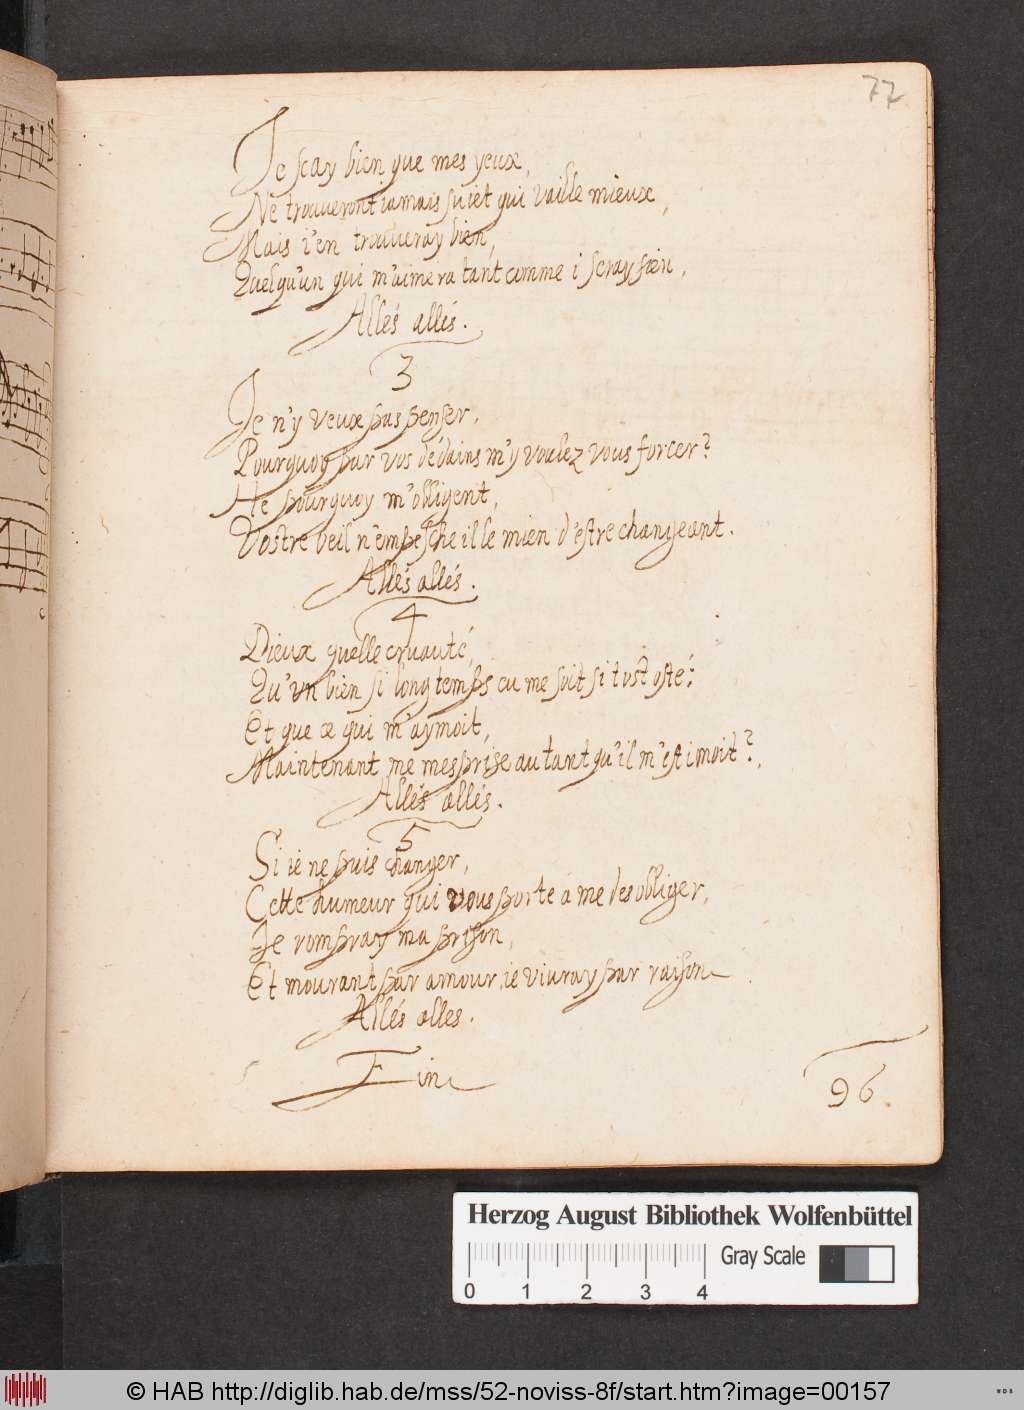 77
Je scay bien que mes yeux,
Ne trouveront iamais suiet qui vaille mieux,
Mais i'en trouveray bien,
Quelqu'un qui m'aimera tant comme i seray sien,
Allés allés.
3
Je n'y veux pas penser,
Pourquoy par vos dédains m'y voulez vous forcer?
He pourquoy m'obligent,
Vostre veil n'empesche il le mien d'estre changeant.
Allés allés.
4
Dieux quelle cruauté,
Qu'vn bien si long temps cu me soit si tost osté;
Et que ce qui m'aymoit,
Maintenant me mesprise autant qu'il m'estimoit?,
Allés allés.
5
Si ie ne puis changer,
Cette humeur qui vous porte à me desobliger,
Je rompray ma prison,
Et mourant par amour, ie viuray par raison
Allés alles.
Fin
96.
Herzog August Bibliothek Wolfenbüttel
Gray Scale
0 1 2 3 4
© HAB http://diglib.hab.de/mss/52-noviss-8f/start.htm?image=00157